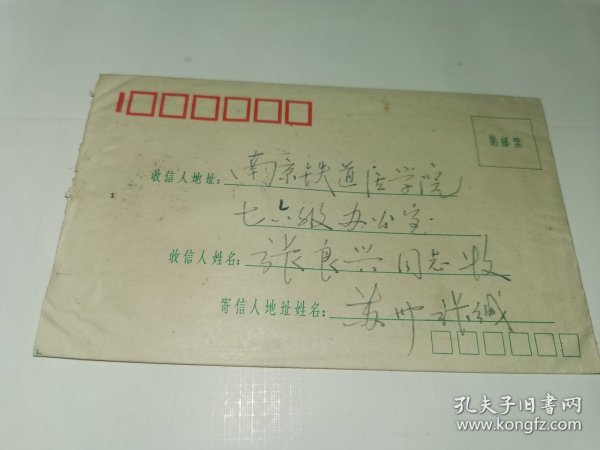 贴邮票
收信人地址：南京铁道医学院
七六级办公室
收信人姓名：张良兴同志收
寄信人地址姓名：苏州张诚
孔夫子旧书网
www.kongfz.com